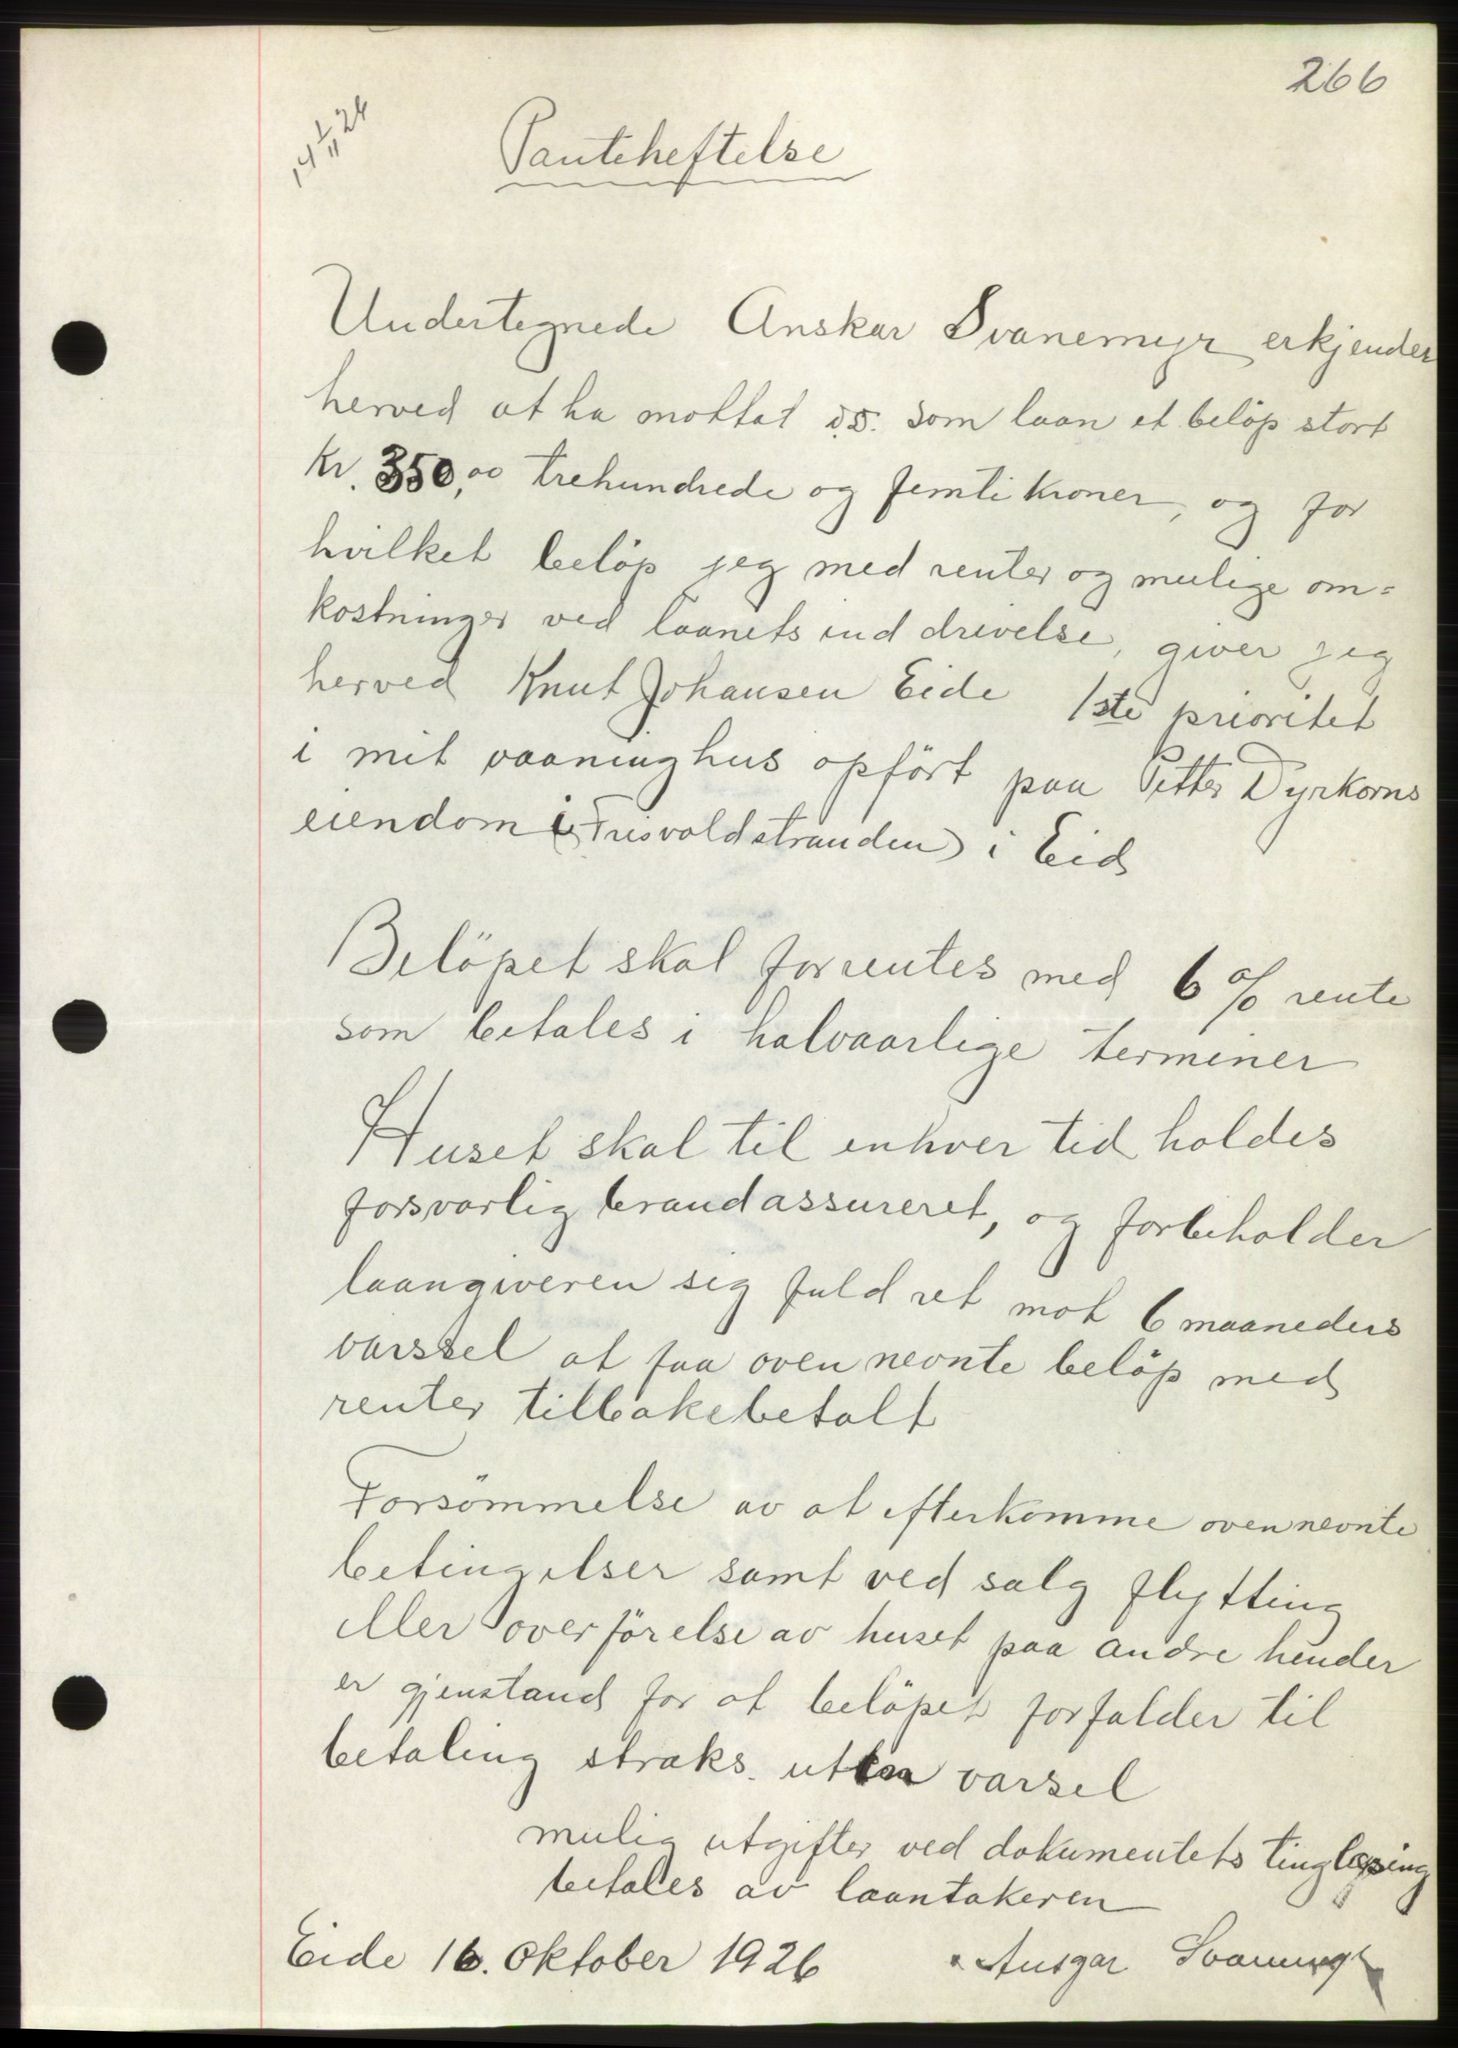 266
Panteheftelse
Undertegnede Anskar Svanemyr erkjender
herved at ha mottat d.d. som laan et beløp stort
Kr. 350,00 trehundrede og femti kroner, og for
hvilket beløp jeg med renter og mulige om=
kostninger ved laanets inddrivelse, giver jeg
herved Knut Johansen Eide 1ste prioritet
i mit vaaninghus opført paa Petter Dyrkorns
eiendom (Frisvoldstranden) i Eid
Beløpet skal forrentes med 6 % rente
som betales i halvaarlige terminer
Huset skal til enhver tid holdes
forsvarlig brandassureret, og forbeholder
laangiveren sig fuld ret mot 6 maaneders
varssel at faa ovennevnte beløp med
renter tilbakebetalt
Forsømmelse av at efterkomme ovennevnte
betingelser samt ved salg flytting
eller overførelse av huset paa andre hender
er gjenstand for at beløpet forfalder til
betaling straks. uten varsel
mulig utgifter ved dokumentets tinglesing
betales av laantakeren
Eide 16. oktober 1926 Ansgar Svanemyr